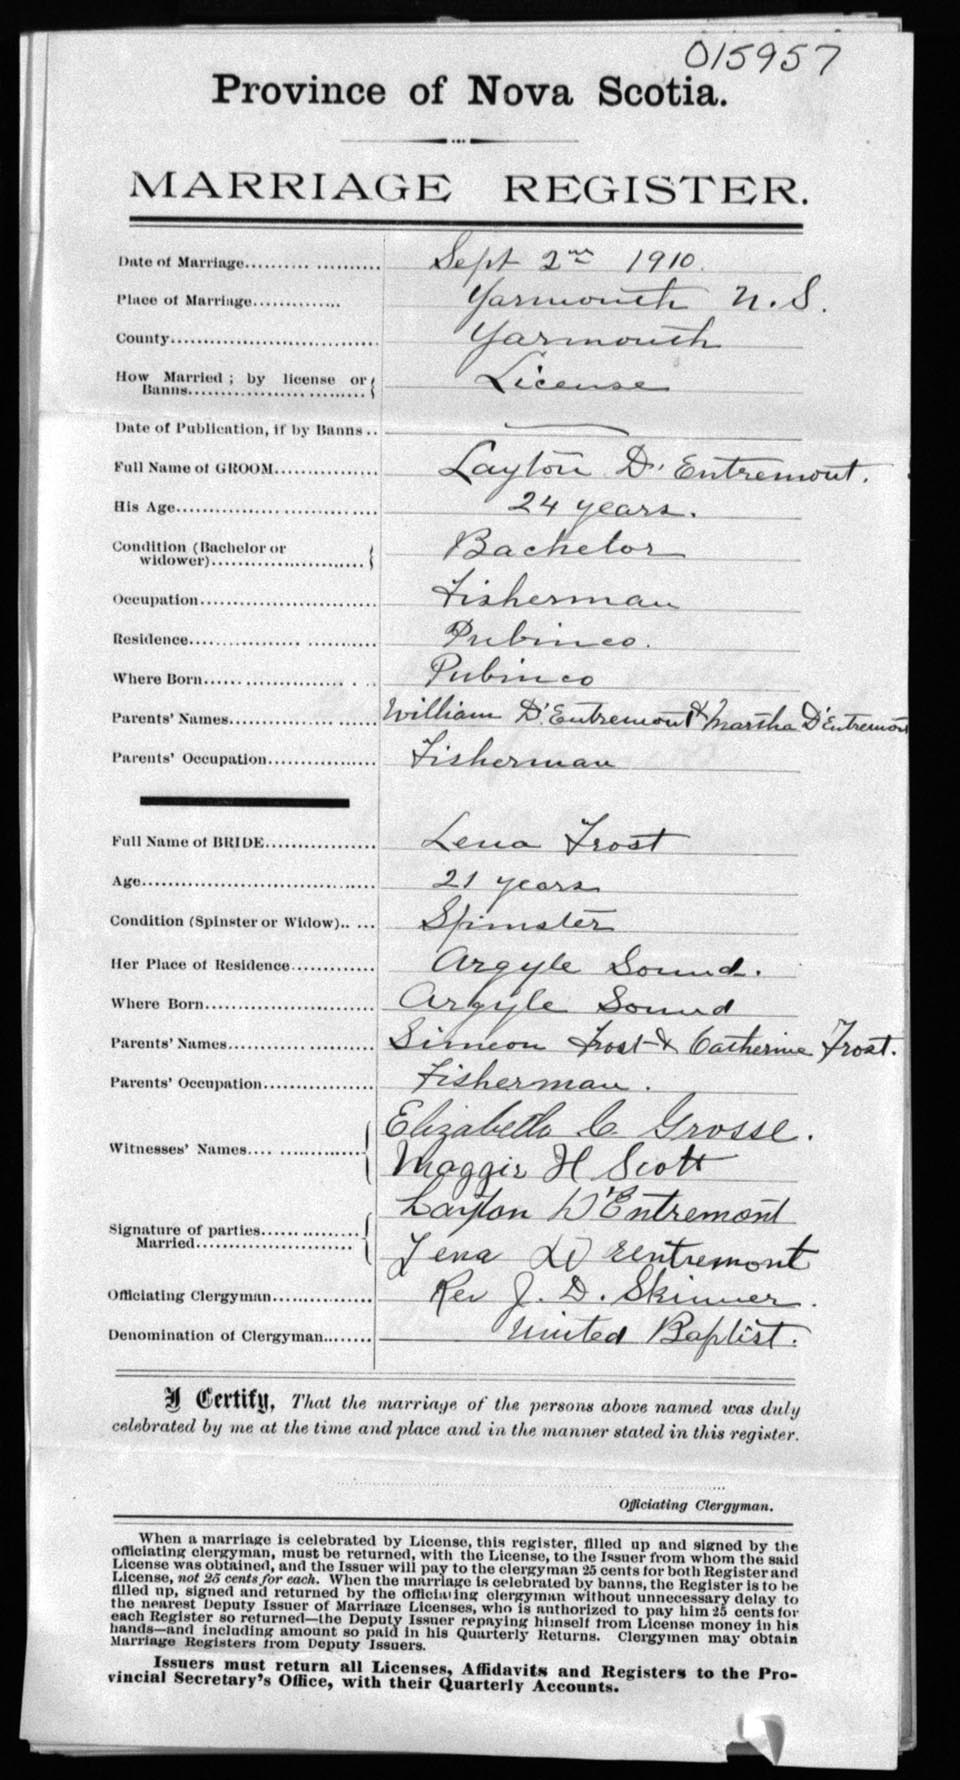 015957
Province of Nova Scotia.
MARRIAGE REGISTER.
Date of Marriage.......... Sept 2nd 1910.
Place of Marriage............. Yarmouth N.S.
County............................... Yarmouth
How Married ; by license or Banns.......................... License
Date of Publication, if by Banns ..
Full Name of GROOM............... Layton D'Entremont.
His Age............................... 24 years.
Condition (Bachelor or widower)....................... Bachelor
Occupation........................... Fisherman
Residence............................ Pubinco.
Where Born.......................... Pubinco
Parents' Names...................... William D'Entremont & Martha D'Entremont
Parents' Occupation................ Fisherman
Full Name of BRIDE................. Lena Frost
Age................................... 21 years
Condition (Spinster or Widow)..... Spinster
Her Place of Residence............. Argyle Sound.
Where Born.......................... Argyle Sound
Parents' Names...................... Simeon Frost & Catherine Frost.
Parents' Occupation................. Fisherman.
Elizabeth C. Grosse.
Witnesses' Names.................. Maggie H Scott
Layton D'Entremont
Signature of parties Married........................ Lena D Eentremont
Officiating Clergyman............... Rev J. D. Skinner.
Denomination of Clergyman....... United Baptist.
I Certify, That the marriage of the persons above named was duly
celebrated by me at the time and place and in the manner stated in this register.
Officiating Clergyman.
When a marriage is celebrated by License, this register, filled up and signed by the
officiating clergyman, must be returned, with the License, to the Issuer from whom the said
License was obtained, and the Issuer will pay to the clergyman 25 cents for both Register and
License, not 25 cents for each. When the marriage is celebrated by banns, the Register is to be
filled up, signed and returned by the officiating clergyman without unnecessary delay to
the nearest Deputy Issuer of Marriage Licenses, who is authorized to pay him 25 cents for
each Register so returned—the Deputy Issuer repaying himself from License money in his
hands—and including amount so paid in his Quarterly Returns. Clergymen may obtain
Marriage Registers from Deputy Issuers.
Issuers must return all Licenses, Affidavits and Registers to the Pro-
vincial Secretary's Office, with their Quarterly Accounts.